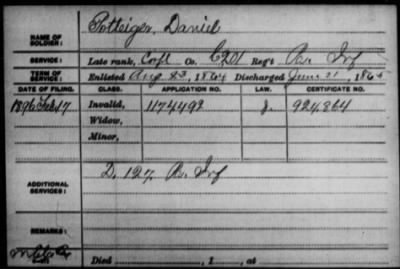 NAME OF SOLDIER: Potteiger, Daniel
SERVICE: Late rank, Corpl Co. C, 201 Reg't Pa. Inf
TERM OF SERVICE: Enlisted Aug. 23, 1864 Discharged June 21, 1865
DATE OF FILING. CLASS. APPLICATION NO. LAW. CERTIFICATE NO.
1896 Feb. 17 Invalid, 1174492 J. 924,864
Widow,
Minor,
ADDITIONAL SERVICES: D. 127. Pa. Inf
REMARKS:
Died , 1 , at